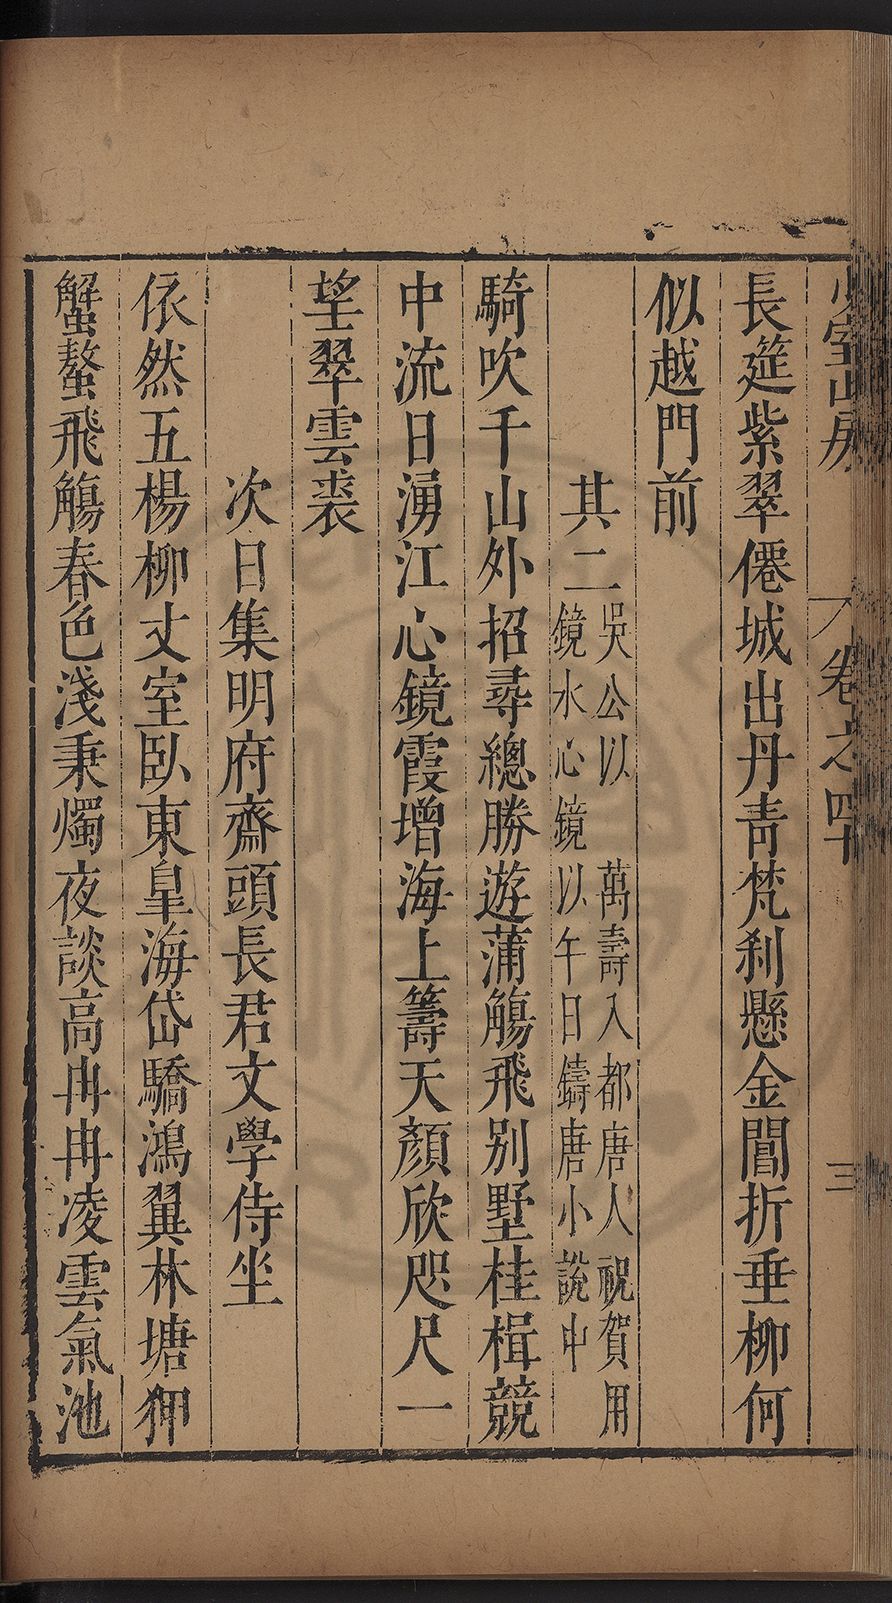 少室山房
卷之四十
三
長筵紫翠僊城出丹青梵刹懸金閶折垂柳何
似越門前
其二
吳公以　萬壽入都唐人祝賀用
鏡水心鏡以午日鑄唐小說中
騎吹千山外招尋總勝遊蒲觴飛别墅桂楫競
中流日湧江心鏡霞增海上籌天顏欣咫尺一
望翠雲裘
次日集明府齋頭長君文學侍坐
依然五楊柳丈室臥東皐海岱驕鴻翼林塘狎
蟹螯飛觴春色淺秉燭夜談高冉冉凌雲氣池